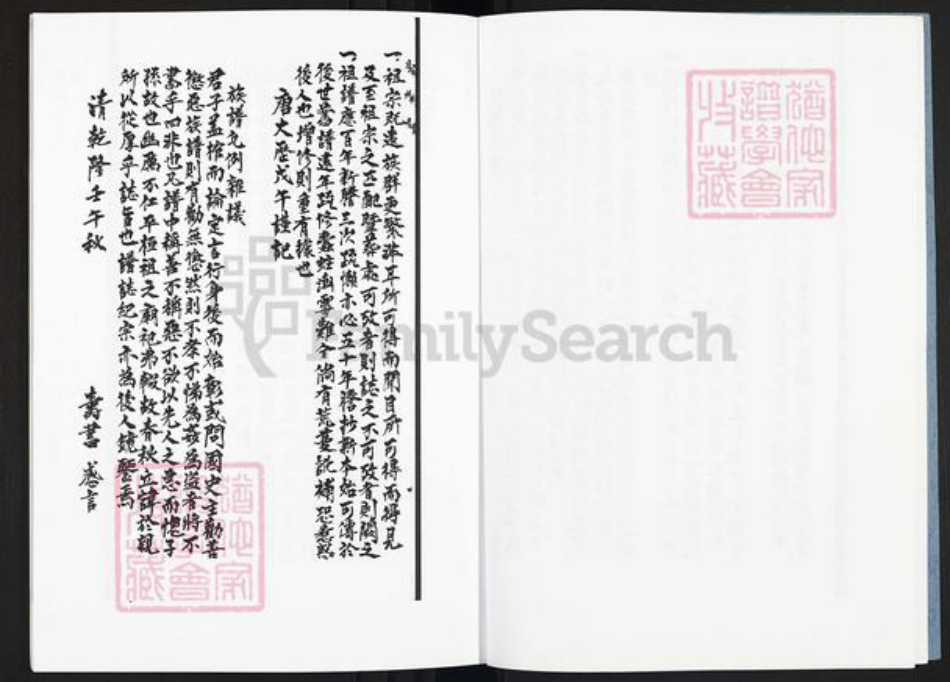 一祖宗既遠族群更繁沸耳所可得而聞目所可得而得見
及至祖宗之匹配暨葬處可攷者則誌之不可攷者則闕之
一祖譜應百年新謄三次疏懶亦必五十年謄抄新本始可傳於
後世舊譜遠年疏修蠹蛀幽零難全倘有荒蔓訛補恐惹
後人也增修則重有據也
唐大歷戊午謹記
族譜凡例雜議
君子蓋棺而論定言行身後而始彰或問國史主勸善
懲惡族譜則有勸無懲然則不孝不悌為姦為盜者將不
書乎曰非也兄譜中稱善不稱惡不欲以先人之惡而愧子
孫故也幽厲不仁平桓祖之廟祀弗輟故春秋立諱於親
所以從厚乎誌旨也譜誌紀宗亦為後人鏡鑒焉
清乾隆壬午秋
壽書 感言
猶他家
譜學會
收藏
猶他家
譜學會
收藏
FamilySearch